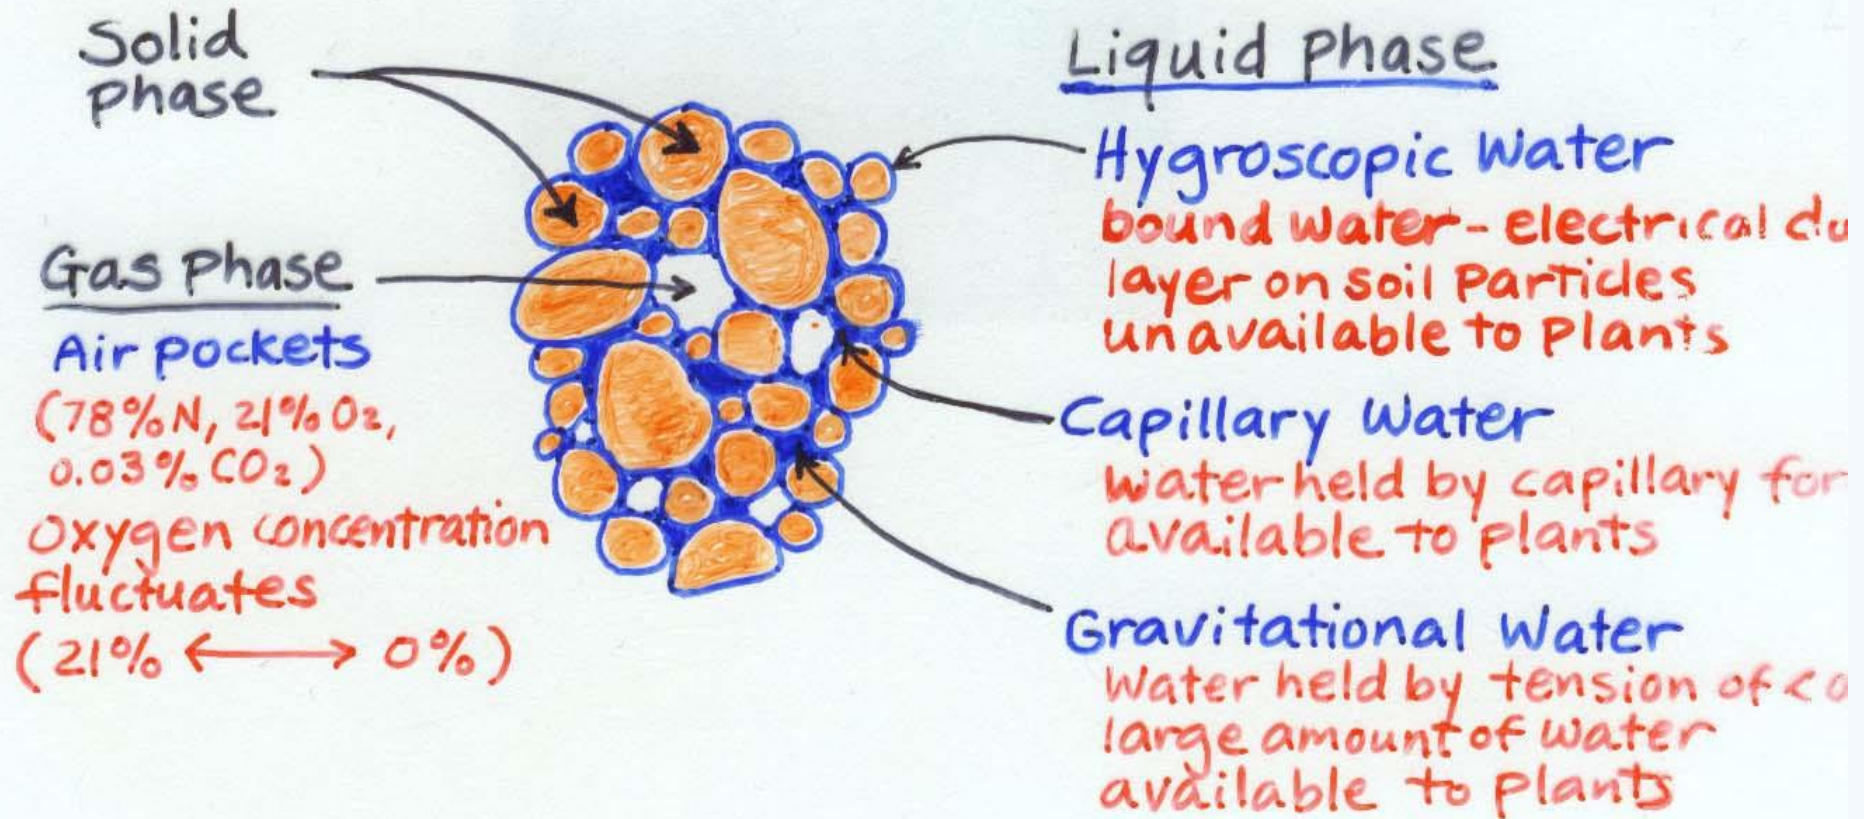 Solid
phase
Gas Phase
Air pockets
(78% N, 21% O2,
0.03% CO2)
Oxygen concentration
fluctuates
(21% ⟷ 0%)
Liquid Phase
Hygroscopic Water
bound water - electrical
layer on soil Particles
unavailable to Plants
Capillary Water
water held by capillary
available to plants
Gravitational Water
Water held by tension of <
large amount of water
available to plants